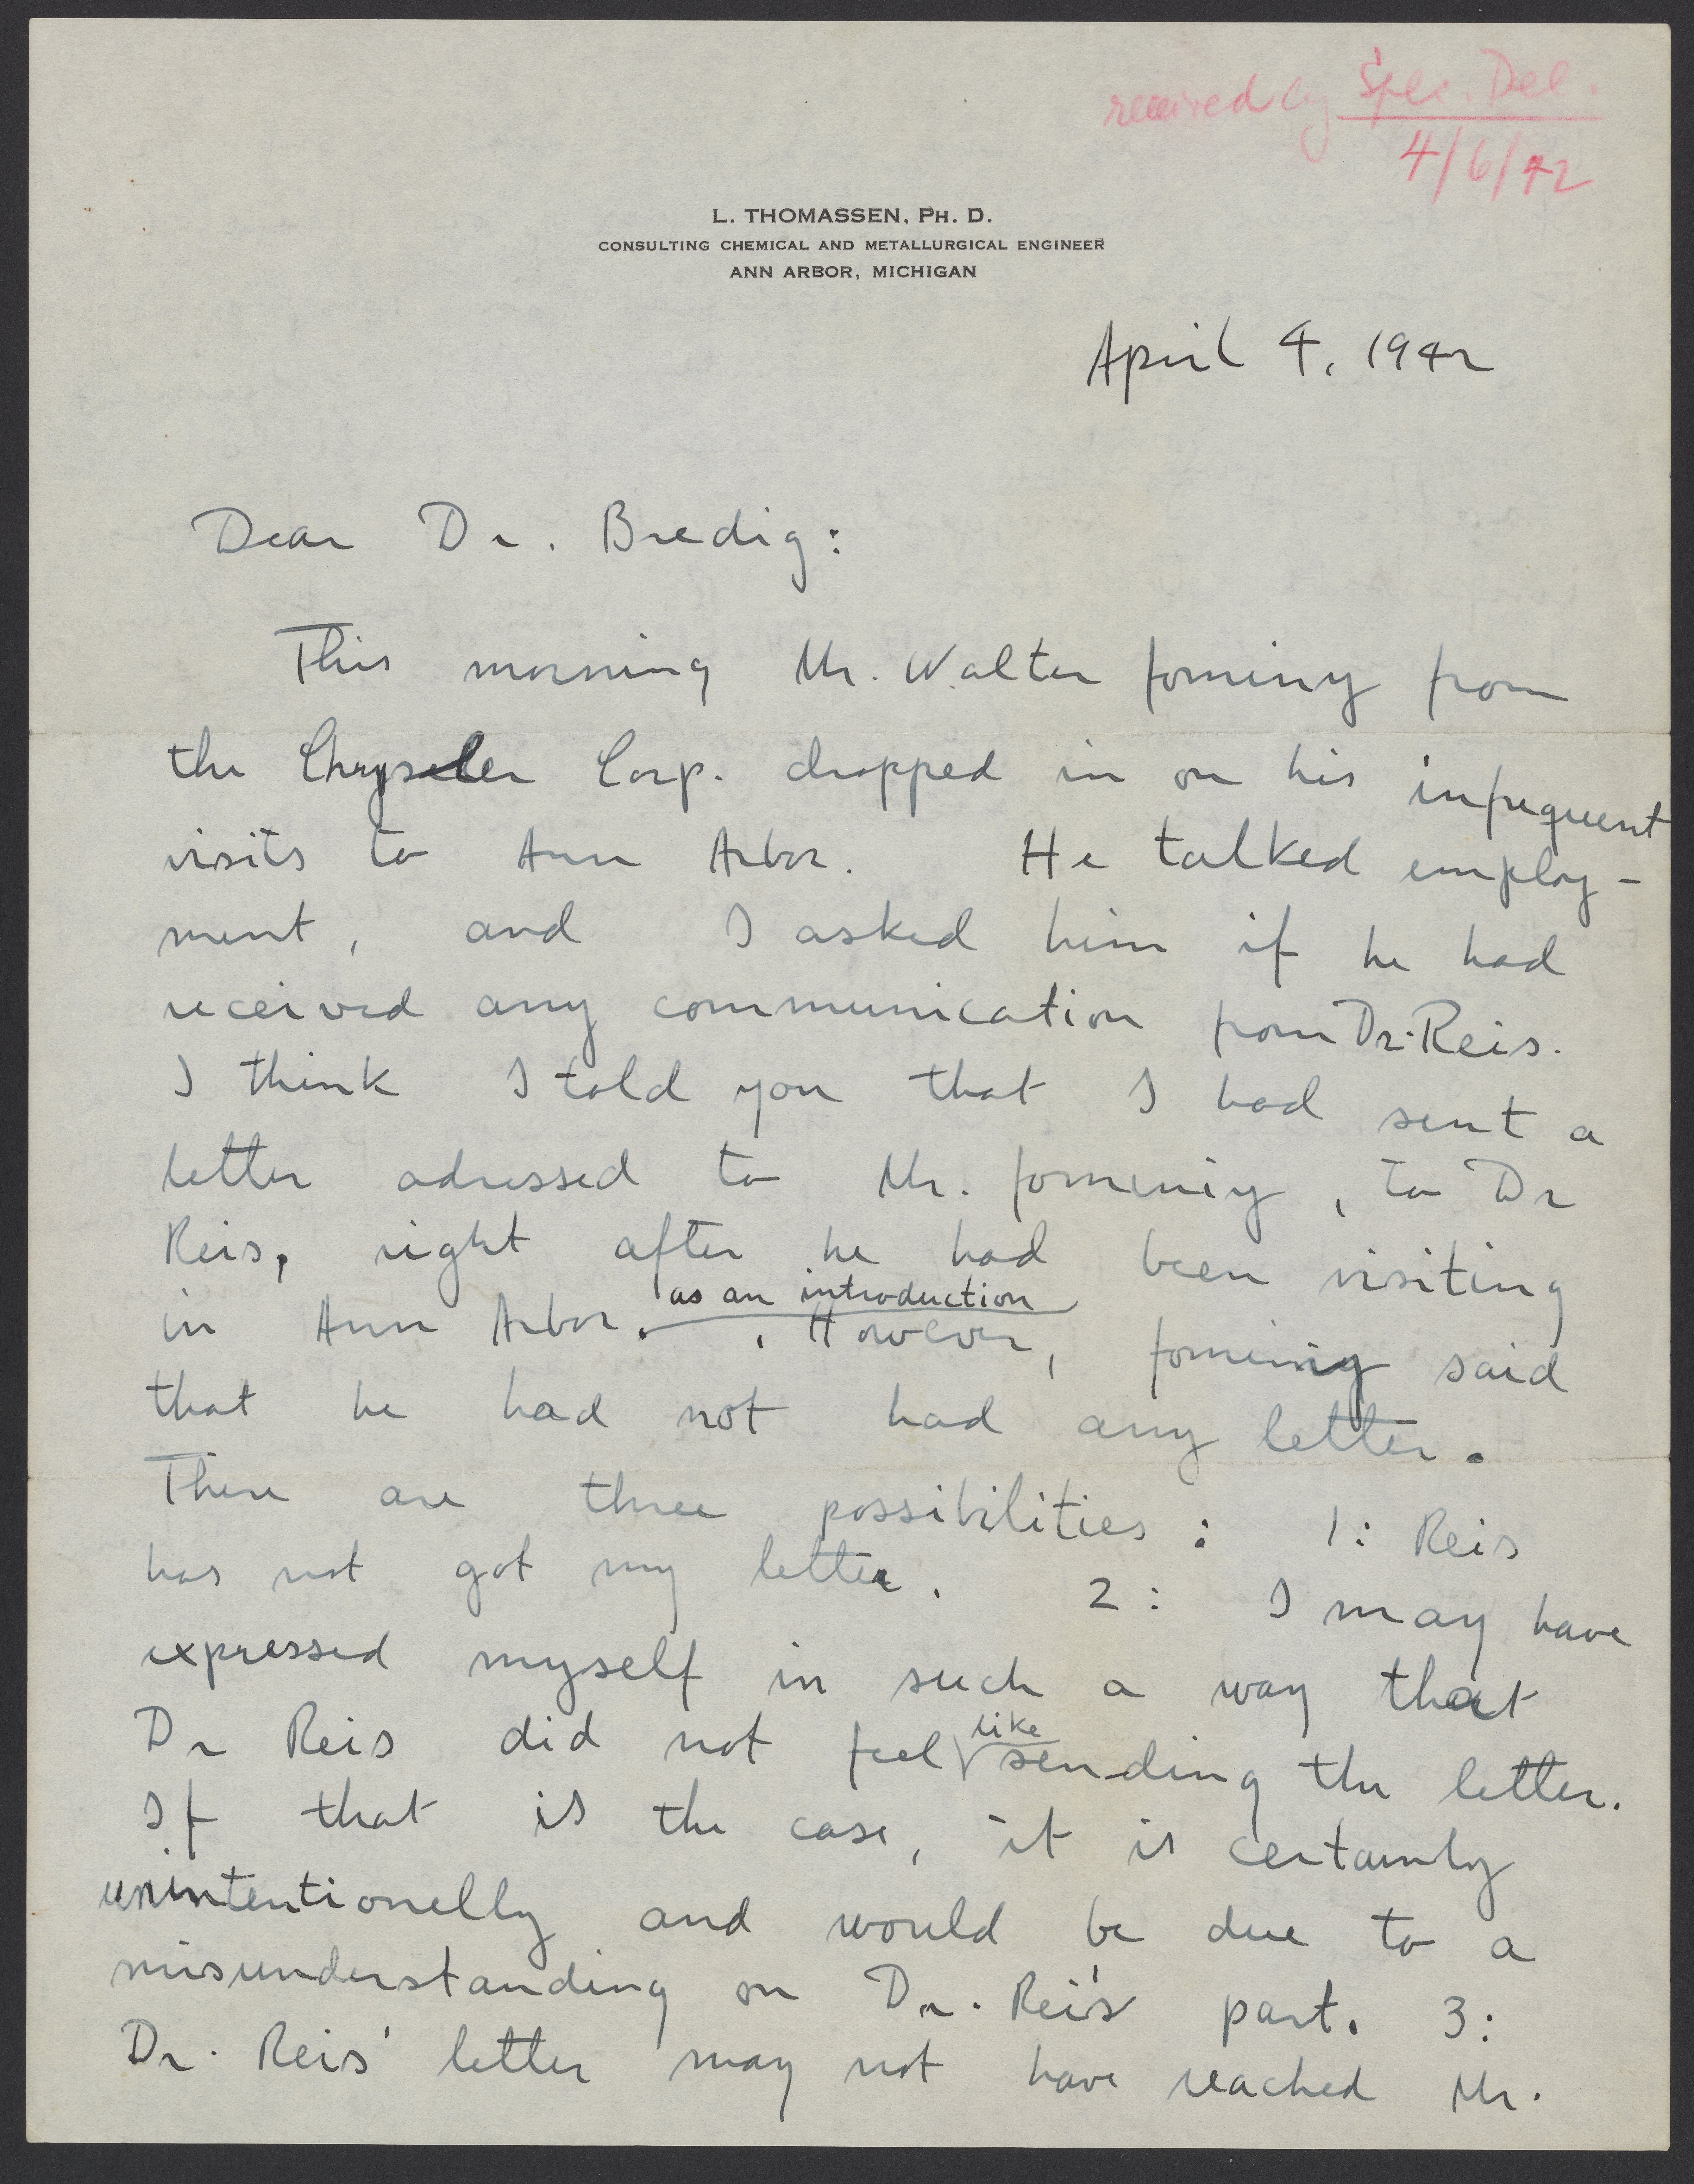 received by Spec. Del.
4/6/42
L. THOMASSEN, PH. D.
CONSULTING CHEMICAL AND METALLURGICAL ENGINEER
ANN ARBOR, MICHIGAN
April 4, 1942
Dear Dr. Bredig:
This morning Mr. Walter Jominy from
the Chrysler Corp. dropped in on his infrequent
visits to Ann Arbor. He talked employ-
ment, and I asked him if he had
received any communication from Dr. Reis.
I think I told you that I had sent a
letter adressed to Mr. Jominy, to Dr
Reis, right after he had been visiting
as an introduction
in Ann Arbor. However, Jominy said
that he had not had any letter.
There are three possibilities: 1: Reis
has not got my letter. 2: I may have
expressed myself in such a way that
Dr Reis did not feel like sending the letter.
If that is the case, it is certainly
unintentionelly and would be due to a
misunderstanding on Dr. Reis' part. 3:
Dr. Reis' letter may not have reached Mr.